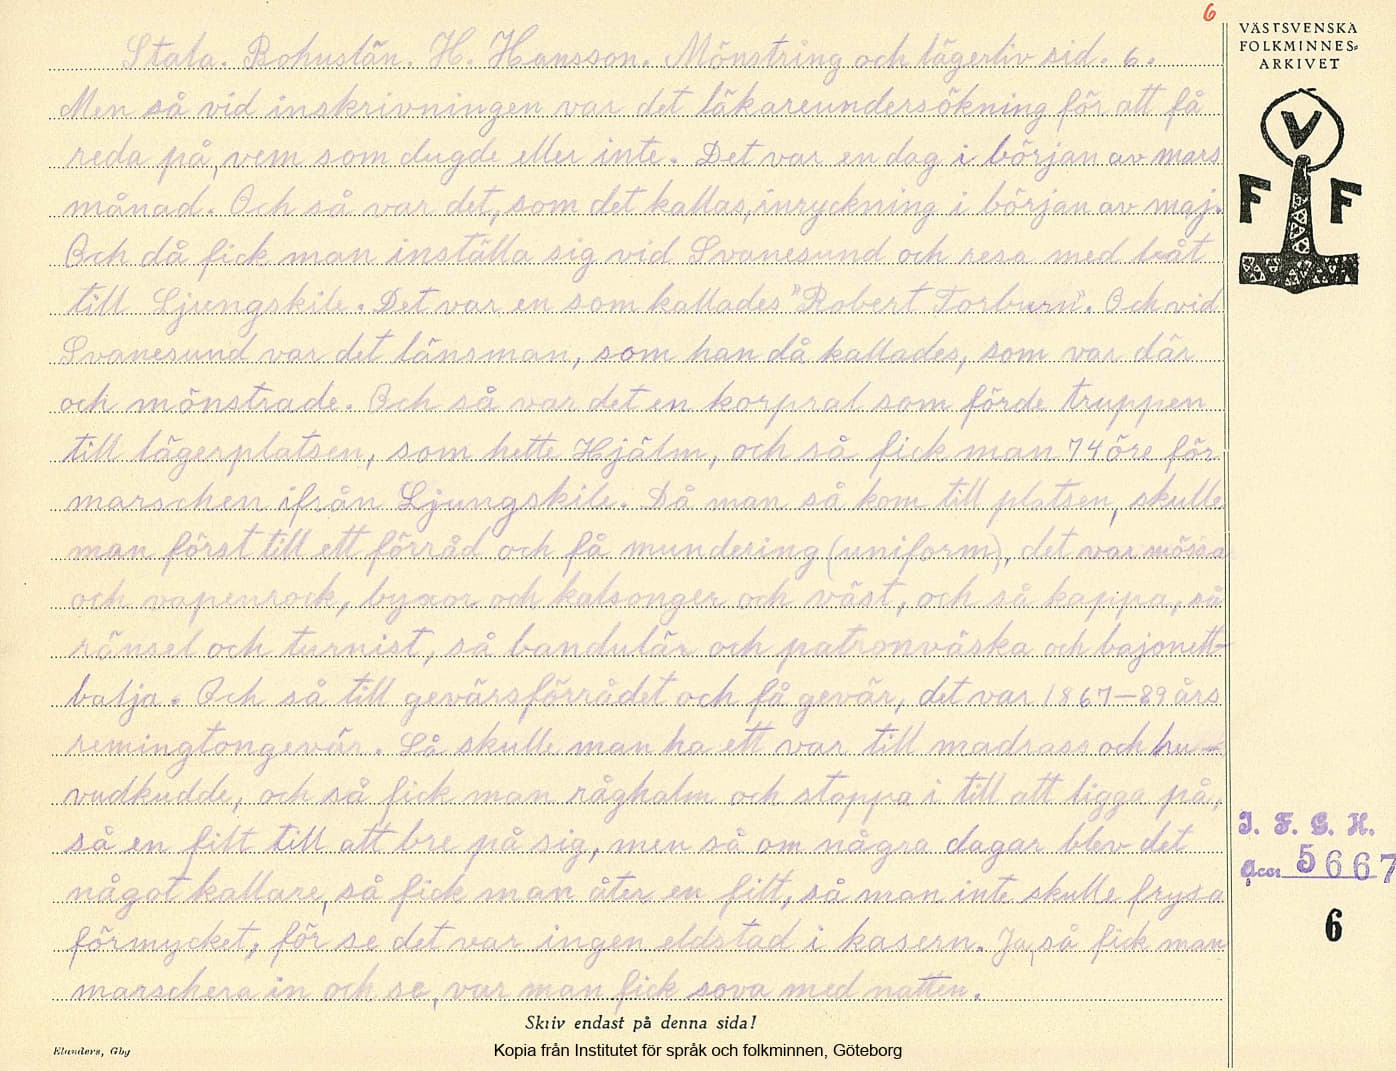 6
VÄSTSVENSKA
FOLKMINNES-
ARKIVET
V
F F
Stala. Bohuslän. H. Hansson. Mönstring och lägerliv sid. 6.
Men så vid inskrivningen var det läkareundersökning för att få
reda på, vem som dugde eller inte. Det var en dag i början av mars
månad. Och så var det, som det kallas, inryckning i början av maj.
Och då fick man inställa sig vid Svanesund och resa med båt
till Ljungskile. Det var en som kallades "Robert Torburn". Och vid
Svanesund var det länsman, som han då kallades, som var där
och mönstrade. Och så var det en korpral som förde truppen
till lägerplatsen, som hette Hjälm, och så fick man 74 öre för
marschen ifrån Ljungskile. Då man så kom till platsen, skulle
man först till ett förråd och få mundering (uniform), det var mössa
och vapenrock, byxor och kalsonger och väst, och så kappa, så
ränsel och turnist, så bandulär och patronväska och bajonett-
balja. Och så till gevärsförrådet och få gevär, det var 1867-89 års
remingtongevär. Så skulle man ha ett var till madrass och hu-
vudkudde, och så fick man råghalm och stoppa i till att ligga på,
så en filt till att bre på sig, men så om några dagar blev det
något kallare, så fick man åter en filt, så man inte skulle frysa
förmycket, för se det var ingen eldstad i kasern. Ja, så fick man
marschera in och se, var man fick sova med natten.
I. F. G. H.
Acc. 5667
6
Skriv endast på denna sida!
Elanders, Gbg
Kopia från Institutet för språk och folkminnen, Göteborg